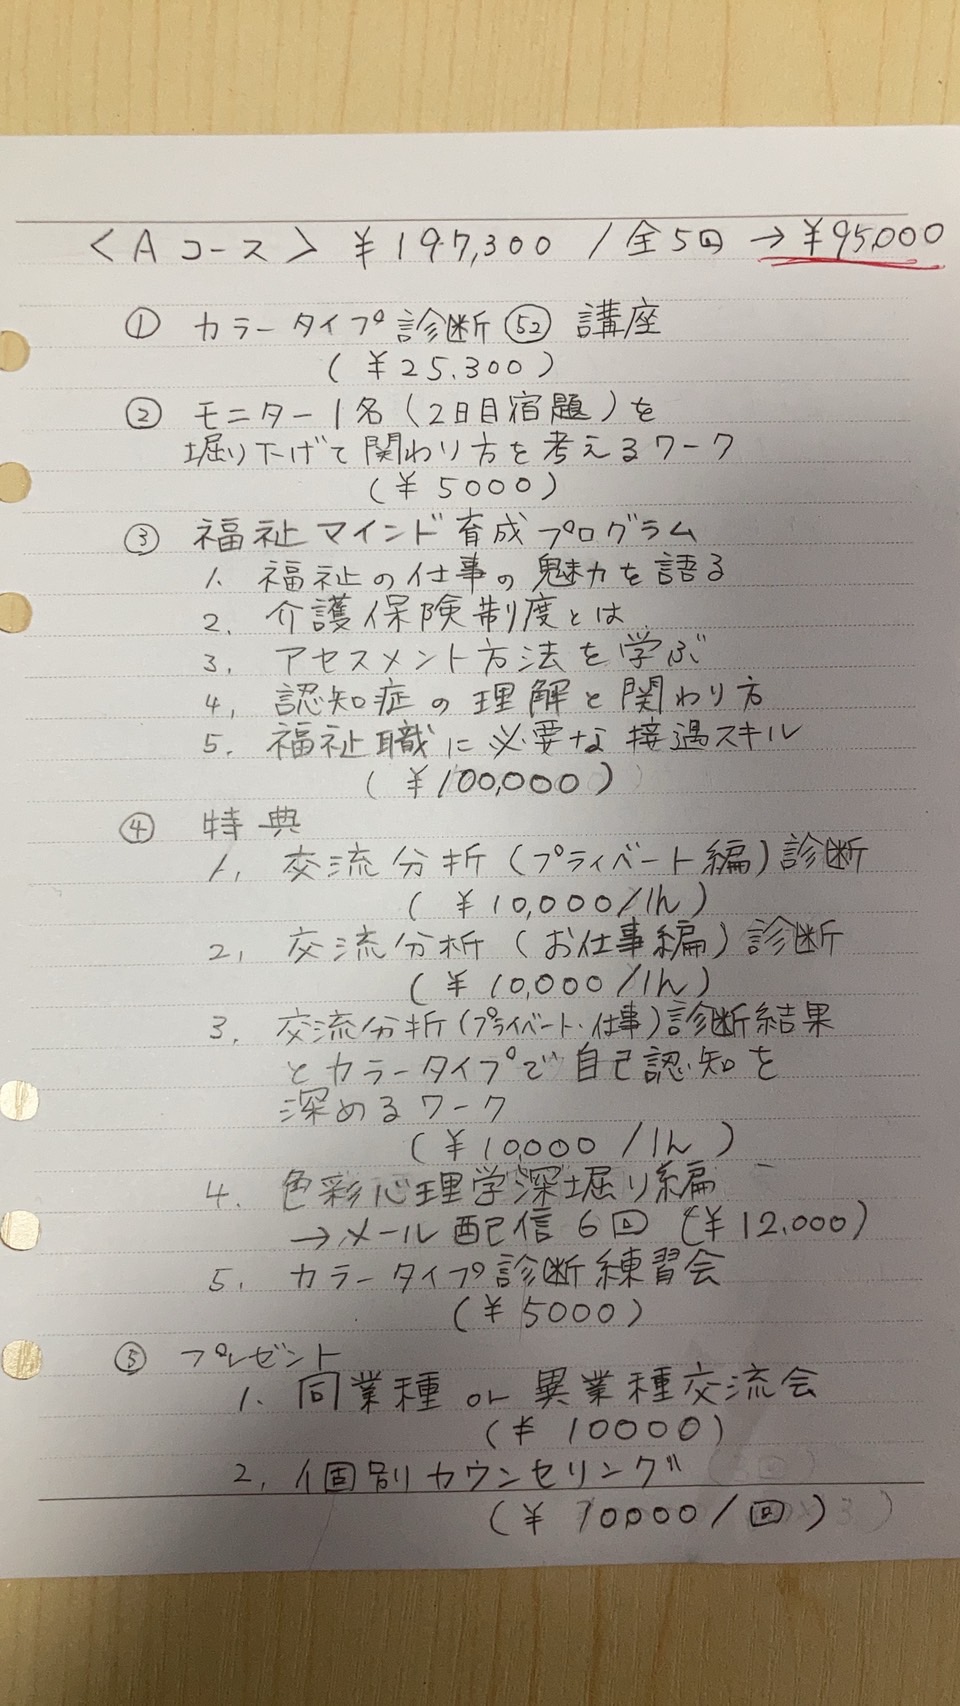 <Aコース> ¥197,300 /全5回 → ¥95,000
① カラータイプ診断52講座
(¥25.300)
② モニター1名(2日目宿題)を
堀り下げて関わり方を考えるワーク
(¥5000)
③ 福祉マインド育成プログラム
1. 福祉の仕事の魅力を語る
2. 介護保険制度とは
3. アセスメント方法を学ぶ
4. 認知症の理解と関わり方
5. 福祉職に必要な接遇スキル
(¥100,000)
④ 特典
1. 交流分析(プライベート編)診断
(¥10,000/1h)
2. 交流分析(お仕事編)診断
(¥10,000/1h)
3. 交流分析(プライベート・仕事)診断結果
とカラータイプで自己認知を
深めるワーク
(¥10,000/1h)
4. 色彩心理学深堀り編
→メール配信6回(¥12.000)
5. カラータイプ診断練習会
(¥5000)
⑤ プレゼント
1. 同業種or異業種交流会
(¥10000)
2. 個別カウンセリング
(¥10000/回)